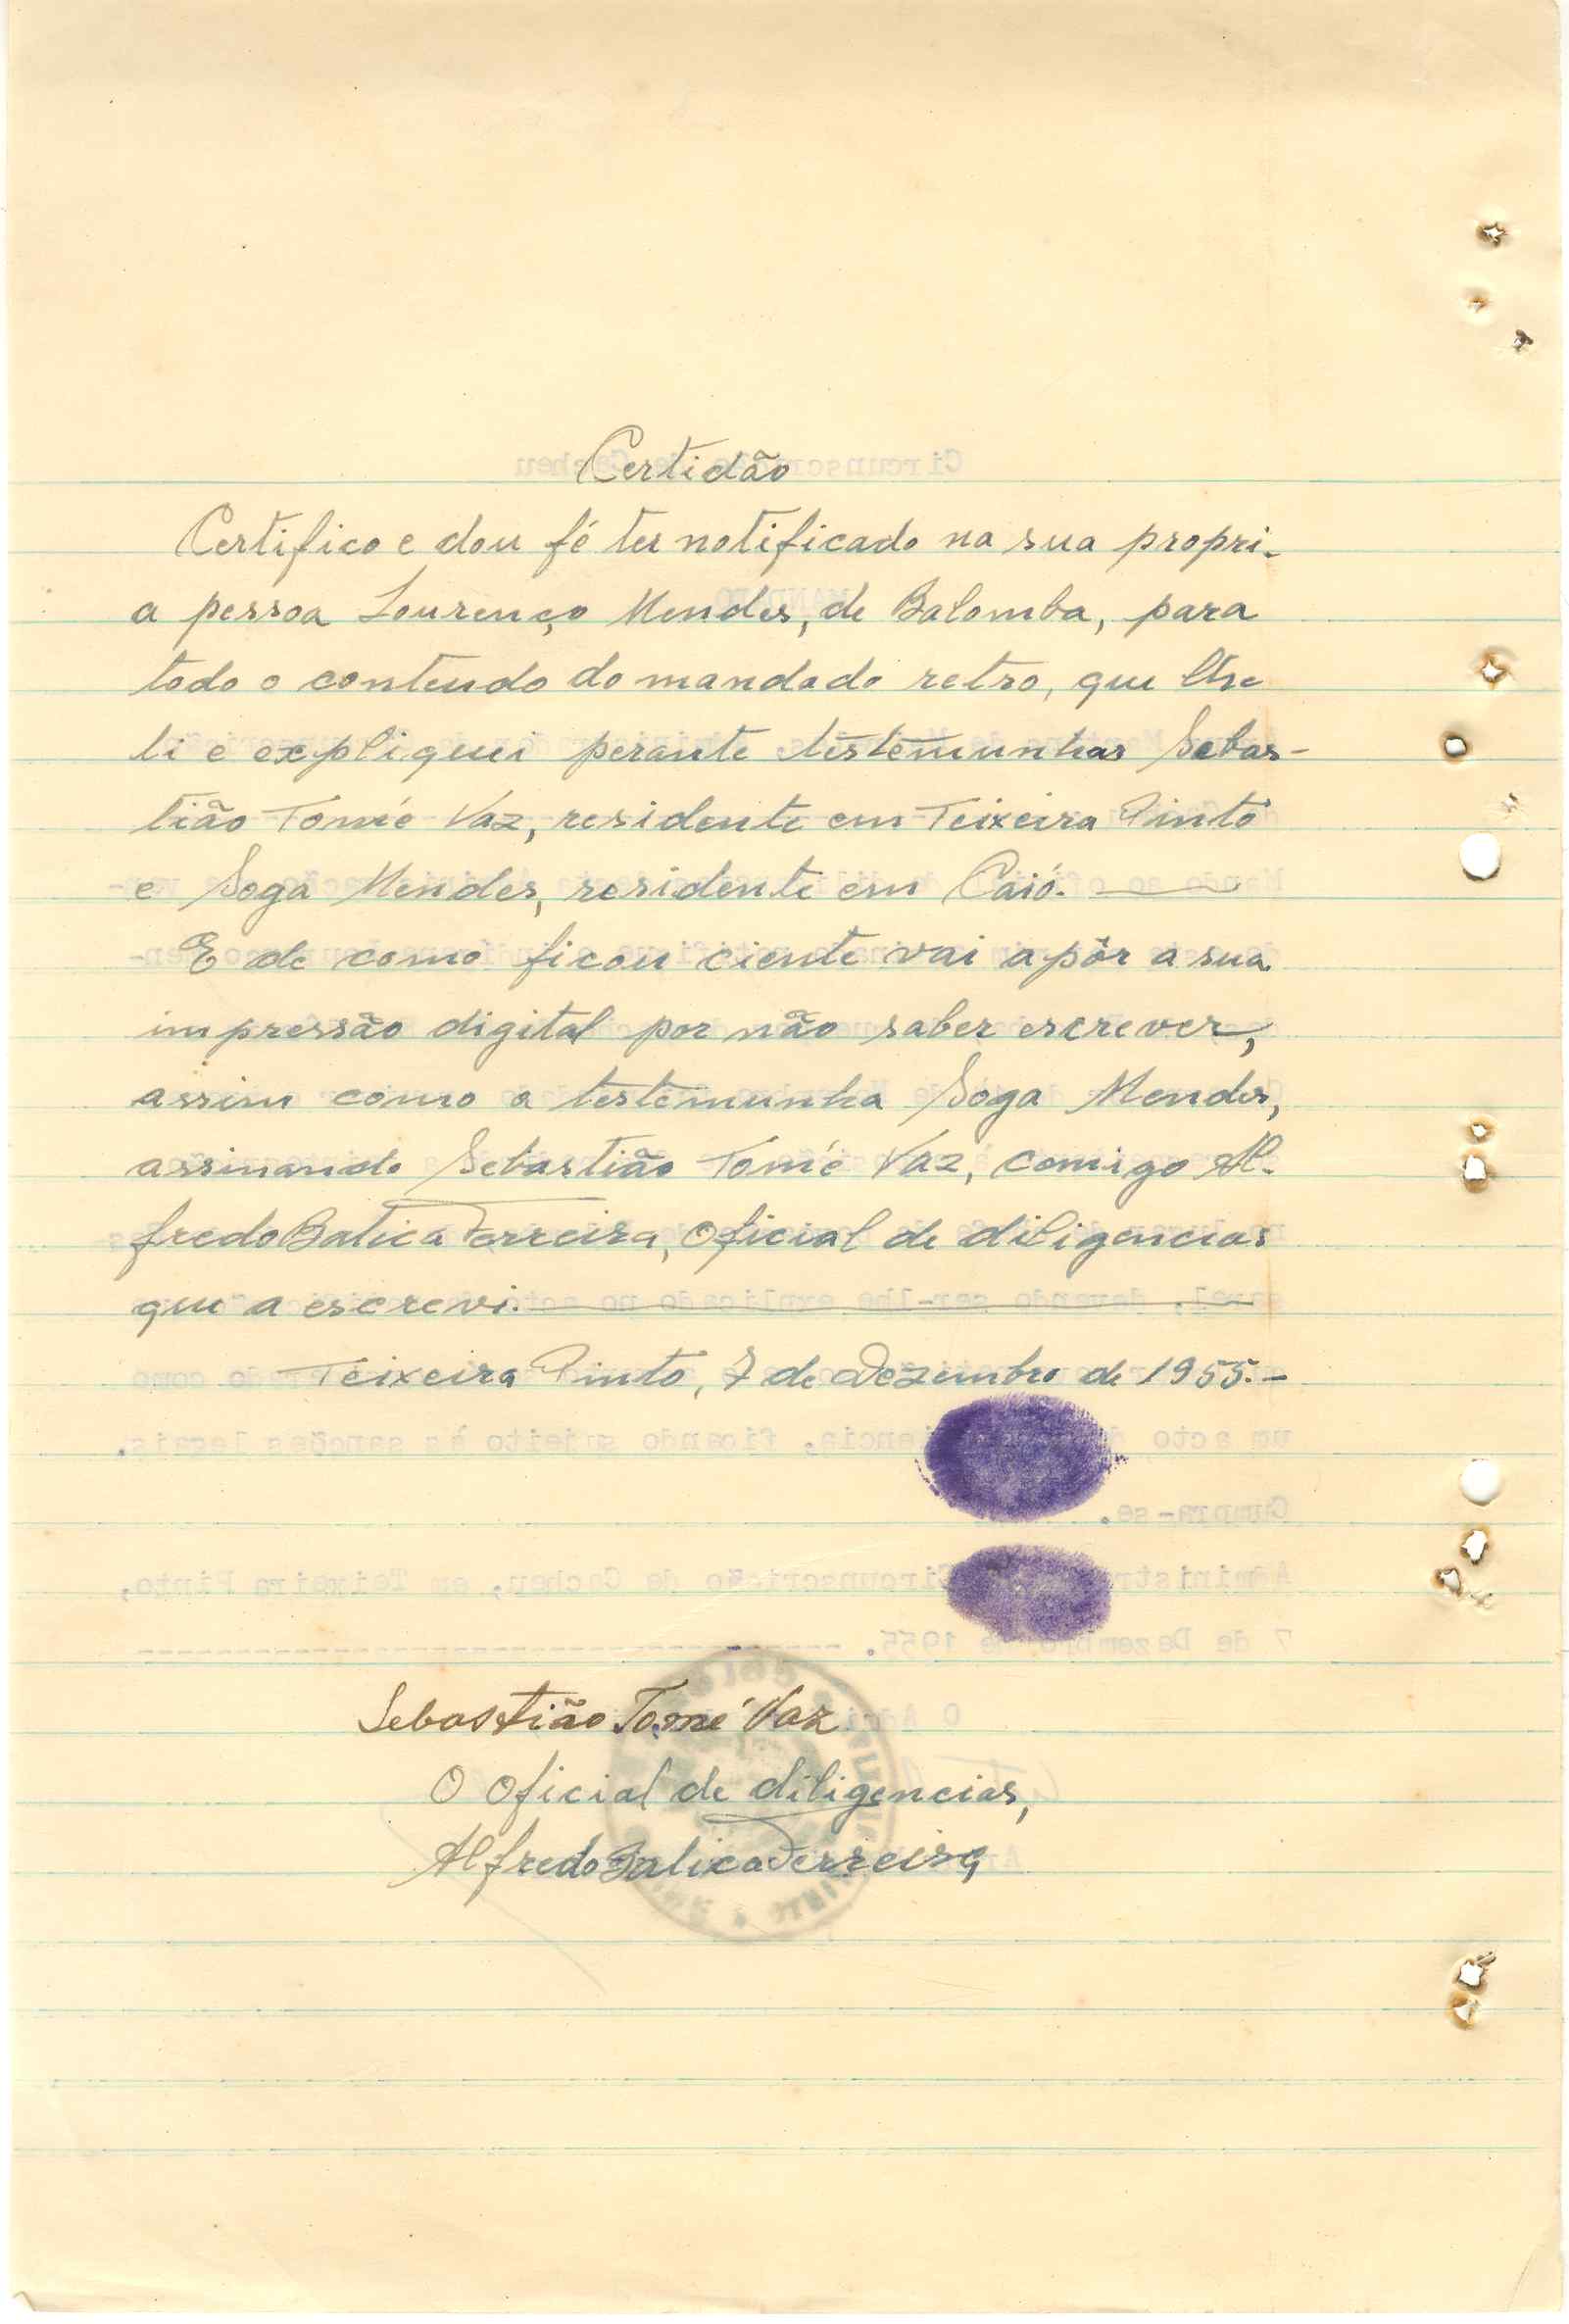 Certidão
Certifico e dou fé ter notificado na sua propri-
a pessoa Lourenço Mendes, de Balomba, para
todo o conteudo do mandado retro, que lhe
li e expliquei perante testemunhas Sebas-
tião Tomé Vaz, residente em Teixeira Pinto
e Soga Mendes, residente em Caió.
E de como ficou ciente vai apôr a sua
impressão digital por não saber escrever,
assim como a testemunha Soga Mendes,
assinando Sebastião Tomé Vaz, comigo Al-
fredo Balica Ferreira, Oficial de diligencias
que a escrevi.
Teixeira Pinto, 7 de Dezembro de 1955.-
Sebastião Tomé Vaz
O Oficial de diligencias,
Alfredo Balica Ferreira